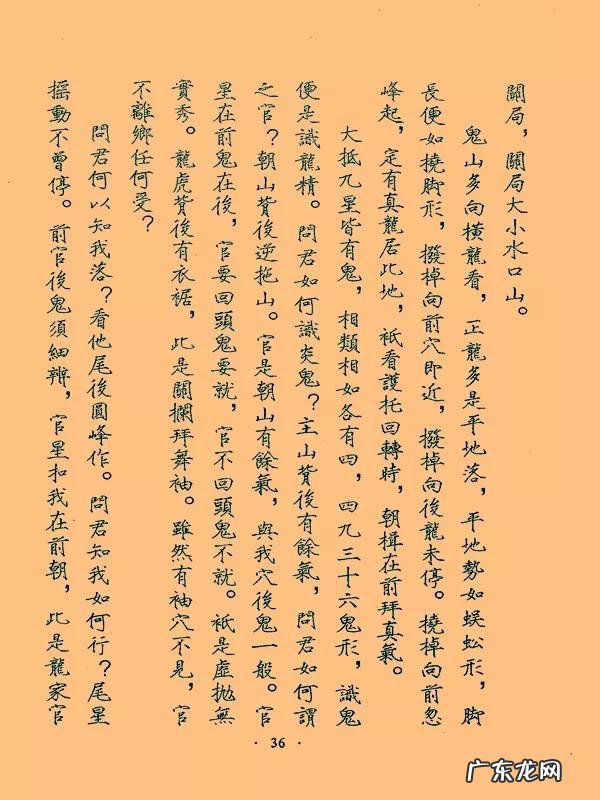 關局，關局大小水口山。
鬼山多向橫龍看，正龍多是平地落，平地勢如蜈蚣形，腳
長便如橈脚形，撥棹向前穴即近，撥棹向後龍未停。橈棹向前忽
峰起，定有真龍居此地，祇看護托回轉時，朝揖在前拜真氣。
大抵九星皆有鬼，相類相如各有四，四九三十六鬼形，識鬼
便是識龍精。問君如何識炎鬼？主山背後有餘氣，問君如何謂
之官？朝山背後逆拖山。官是朝山有餘氣，與我穴後鬼一般。官
星在前鬼在後，官要回頭鬼要就，官不回頭鬼不就。祇是虛拋無
實秀。龍虎背後有衣裾，此是關攔拜舞袖。雖然有袖穴不見，官
不離鄉任何受？
問君何以知我落？看他尾後圓峰作。問君知我如何行？尾星
搖動不曾停。前官後鬼須細辨，官星扣我在前朝，此是龍家官
· 36 ·
广东龙网